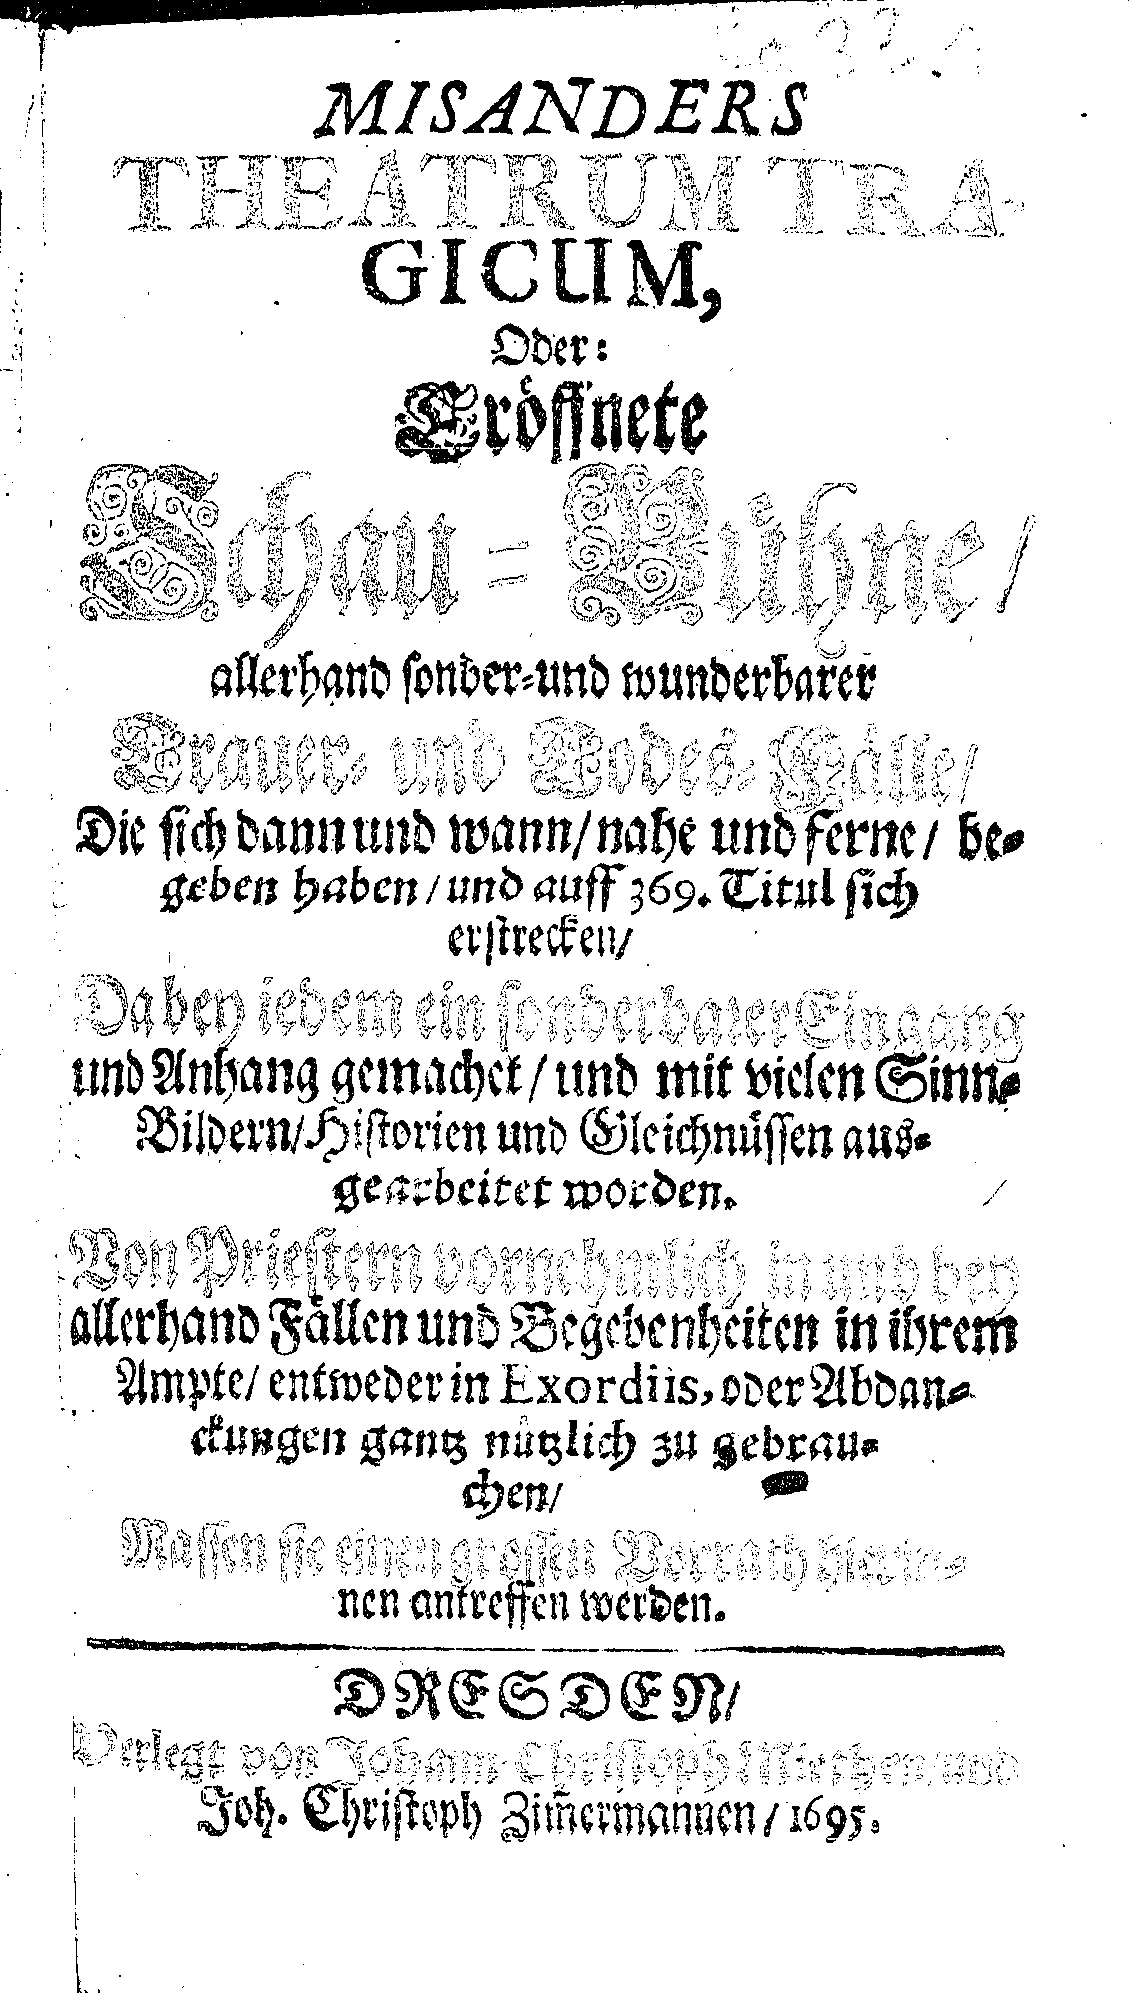 MISANDERS
THEATRUM TRA-
GICUM,
Oder:
Eröffnete
Schau-Bühne/
allerhand sonder-und wunderbarer
Trauer- und Todes-Fälle/
Die sich dann und wann/ nahe und ferne/ be-
geben haben/ und auff 369. Titul sich
erstrecken/
Dabey iedem ein sonderbarer Eingang
und Anhang gemachet/ und mit vielen Sinn-
Bildern/ Historien und Gleichnüssen aus-
gearbeitet worden.
Von Priestern vornehmlich in und bey
allerhand Fällen und Begebenheiten in ihrem
Ampte/ entweder in Exordiis, oder Abdan-
ckungen gantz nützlich zu gebrau-
chen/
Massen sie einen grossen Vorrath hierin-
nen antreffen werden.
DRESDEN/
Verlegt von Johann Christoph Miethen/ und
Joh. Christoph Zim̃ermannen/ 1695.